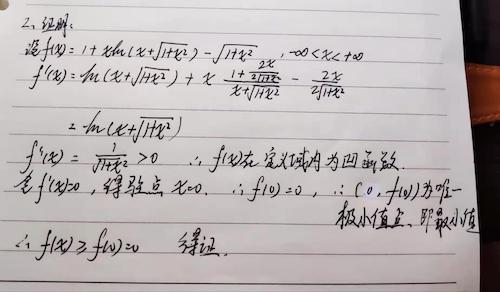 2、证明:
设f(x)=1+xln(x+√(1+x²))-√(1+x²), -∞<x<+∞
f'(x)=ln(x+√(1+x²))+x (1+2x/(2√(1+x²)))/(x+√(1+x²)) - 2x/(2√(1+x²))
=ln(x+√(1+x²))
f''(x)=1/√(1+x²)>0 ∴f(x)在定义域内为凹函数.
令f'(x)=0,得驻点x=0. ∴f(0)=0,∴(0,f(0))为唯一
极小值点、即最小值
∴f(x)≥f(0)=0 得证.